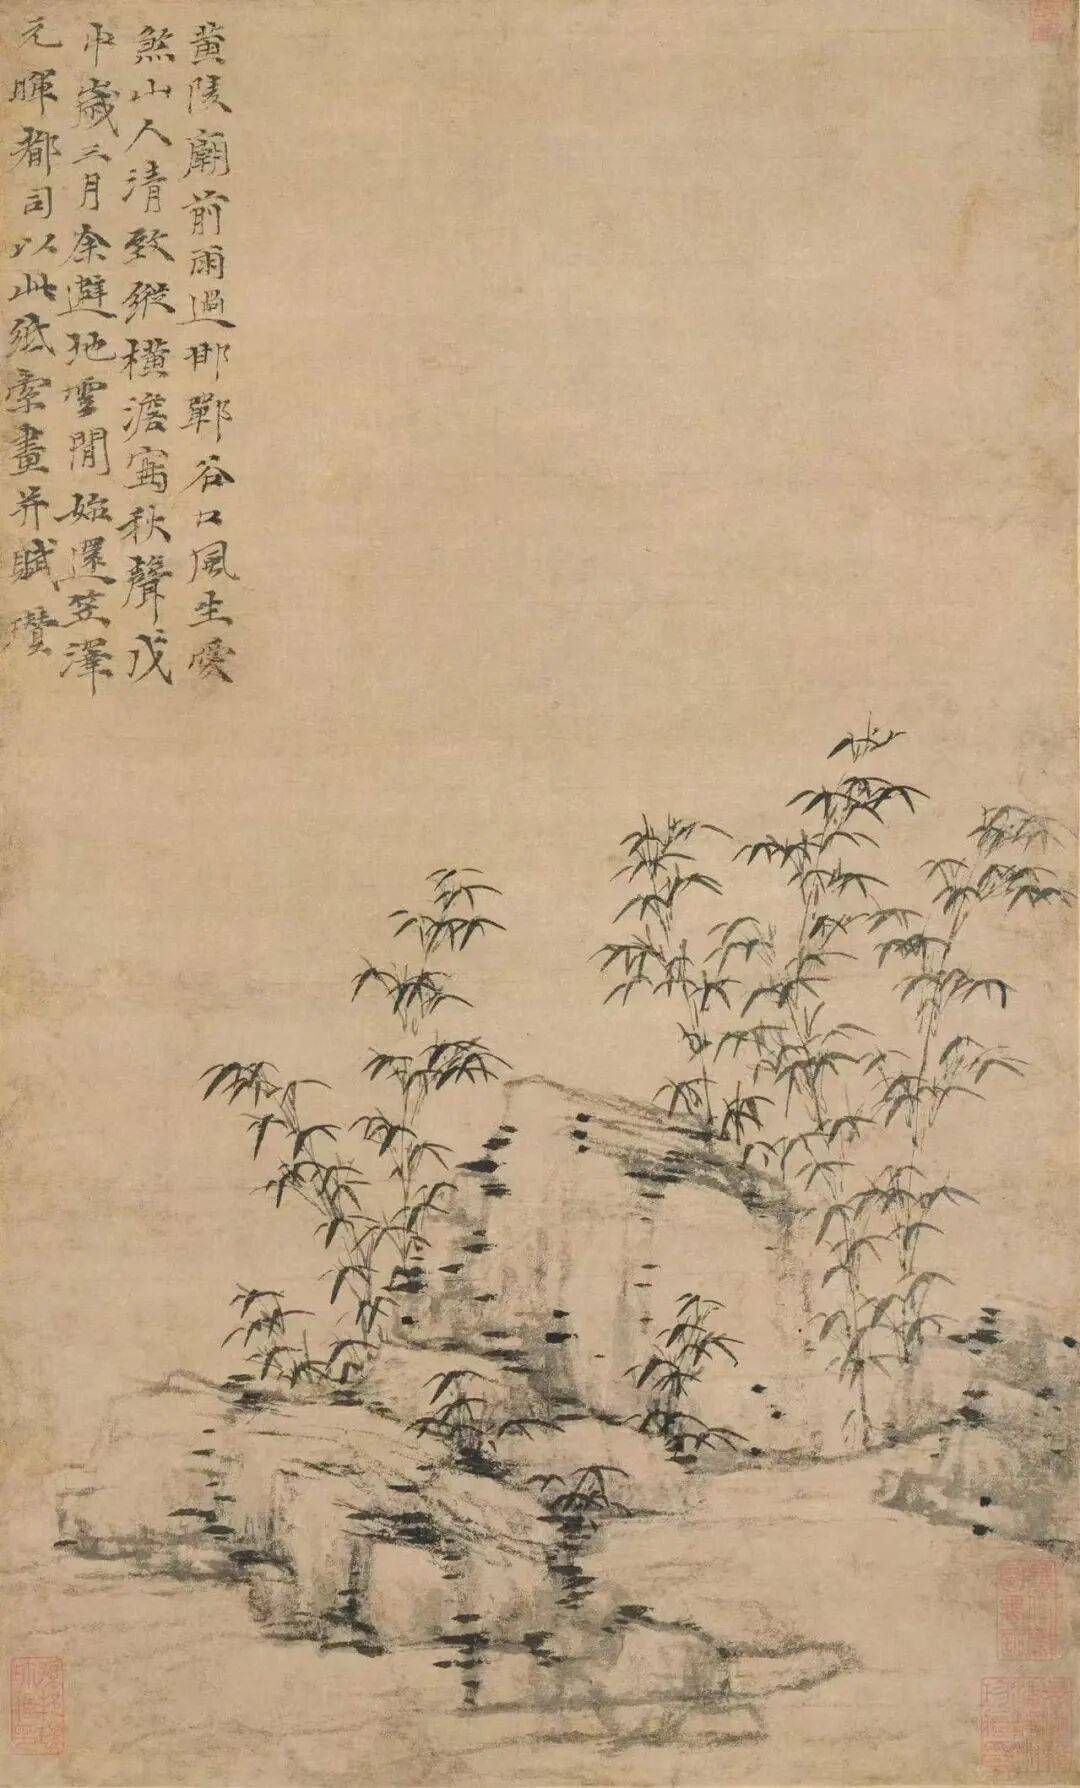 黄陵廟前雨過邯鄲谷口風生愛
煞山人清致縱横澹寫秋聲戊
申歲三月余避地雲間始還笠澤
元暉都司以此紙索畫并賦瓚